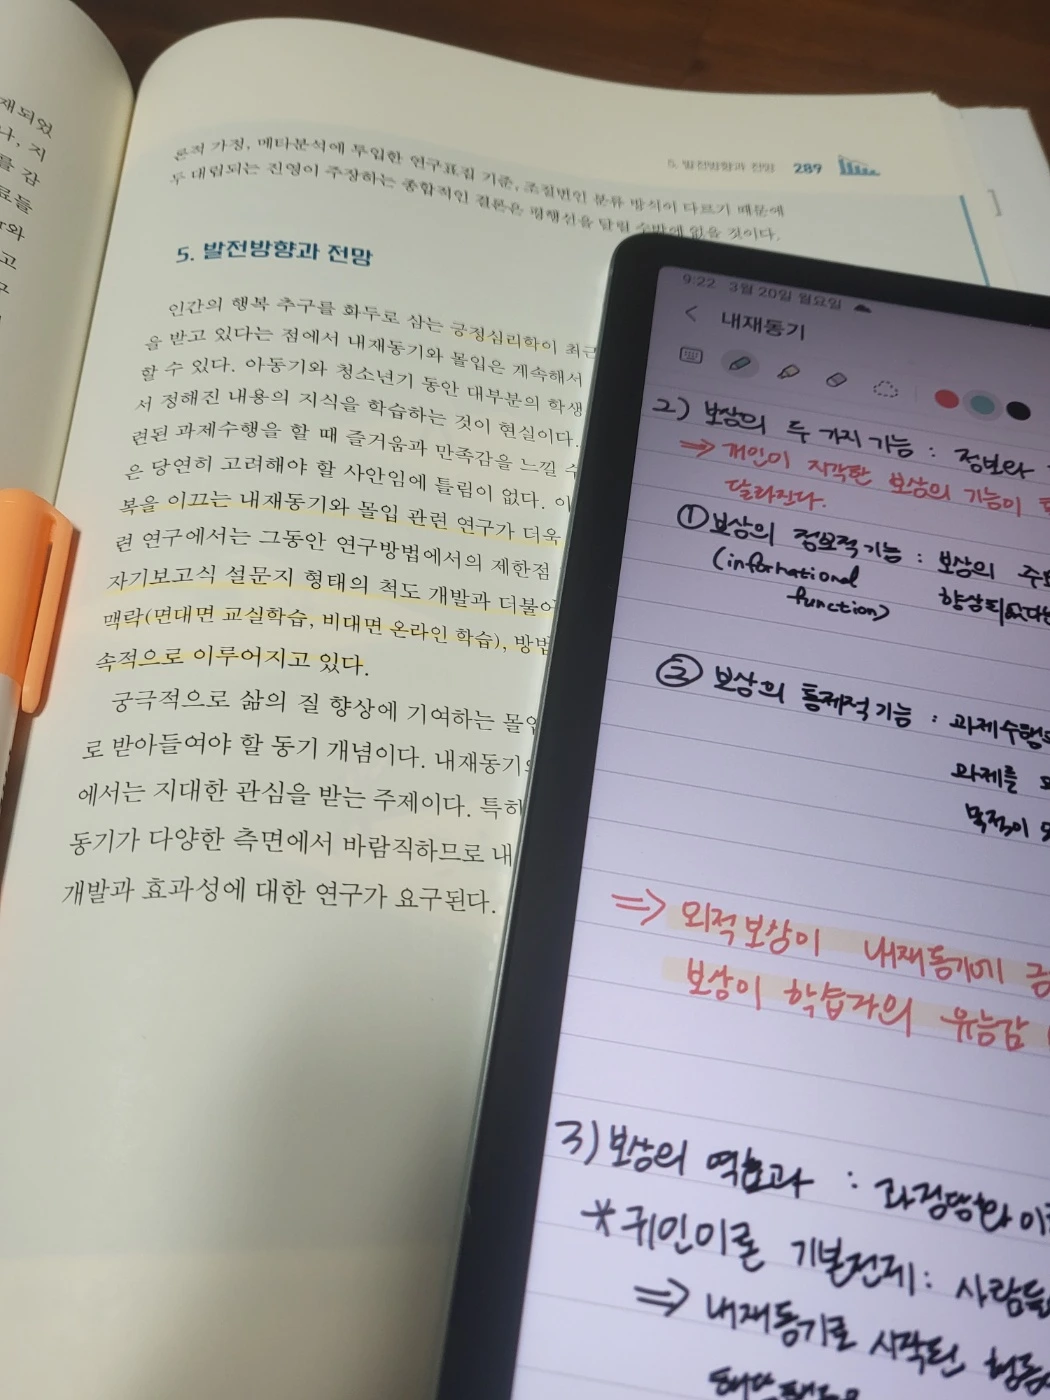 재되었
나, 지
를 감
료들
와
고
5. 발전방향과 전망 289
론적 가정, 메타분석에 투입한 연구표집 기준, 조절변인 분류 방식이 다르기 때문에
두 대립되는 진영이 주장하는 종합적인 결론은 평행선을 달릴 수밖에 없을 것이다.
5. 발전방향과 전망
인간의 행복 추구를 화두로 삼는 긍정심리학이 최근
을 받고 있다는 점에서 내재동기와 몰입은 계속해서
할 수 있다. 아동기와 청소년기 동안 대부분의 학생
서 정해진 내용의 지식을 학습하는 것이 현실이다.
련된 과제수행을 할 때 즐거움과 만족감을 느낄 수
은 당연히 고려해야 할 사안임에 틀림이 없다. 이
복을 이끄는 내재동기와 몰입 관련 연구가 더욱
련 연구에서는 그동안 연구방법에서의 제한점
자기보고식 설문지 형태의 척도 개발과 더불어
맥락(면대면 교실학습, 비대면 온라인 학습), 방법
속적으로 이루어지고 있다.
궁극적으로 삶의 질 향상에 기여하는 몰입
로 받아들여야 할 동기 개념이다. 내재동기
에서는 지대한 관심을 받는 주제이다. 특히
동기가 다양한 측면에서 바람직하므로 내
개발과 효과성에 대한 연구가 요구된다.
9:22 3월 20일 월요일
내재동기
2) 보상의 두 가지 기능 : 정보와
⇒ 개인이 지각한 보상의 기능이
달라진다.
① 보상의 정보적 기능 : 보상의 주
(informational 향상되었다는
function)
② 보상의 통제적 기능 : 과제수행
과제를
목적이
⇒ 외적보상이 내재동기에
보상이 학습자의 유능감
3) 보상의 역효과 : 과정당화 이
* 귀인이론 기본전제 : 사람들
⇒ 내재동기로 시작된 행동